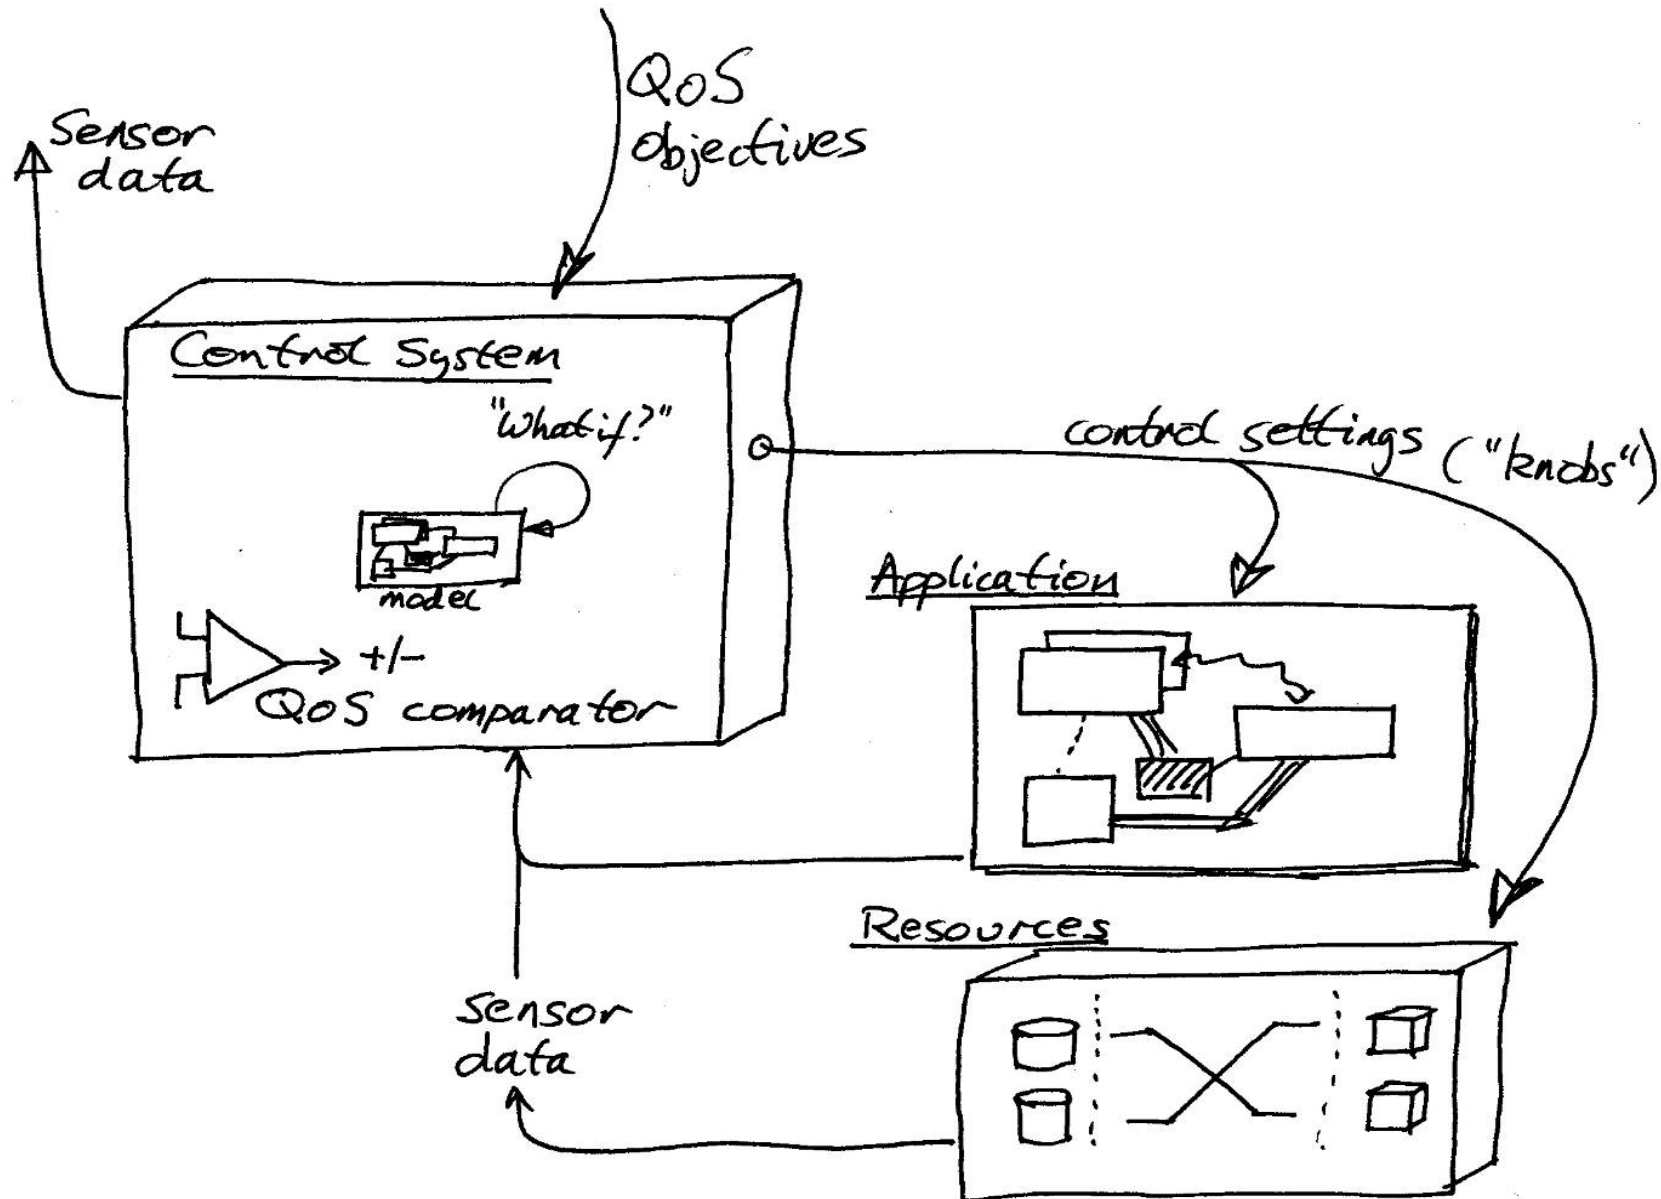 QoS
objectives
Sensor
data
Control System
"What if?"
model
+/-
QoS comparator
control settings ("knobs")
Application
Resources
sensor
data